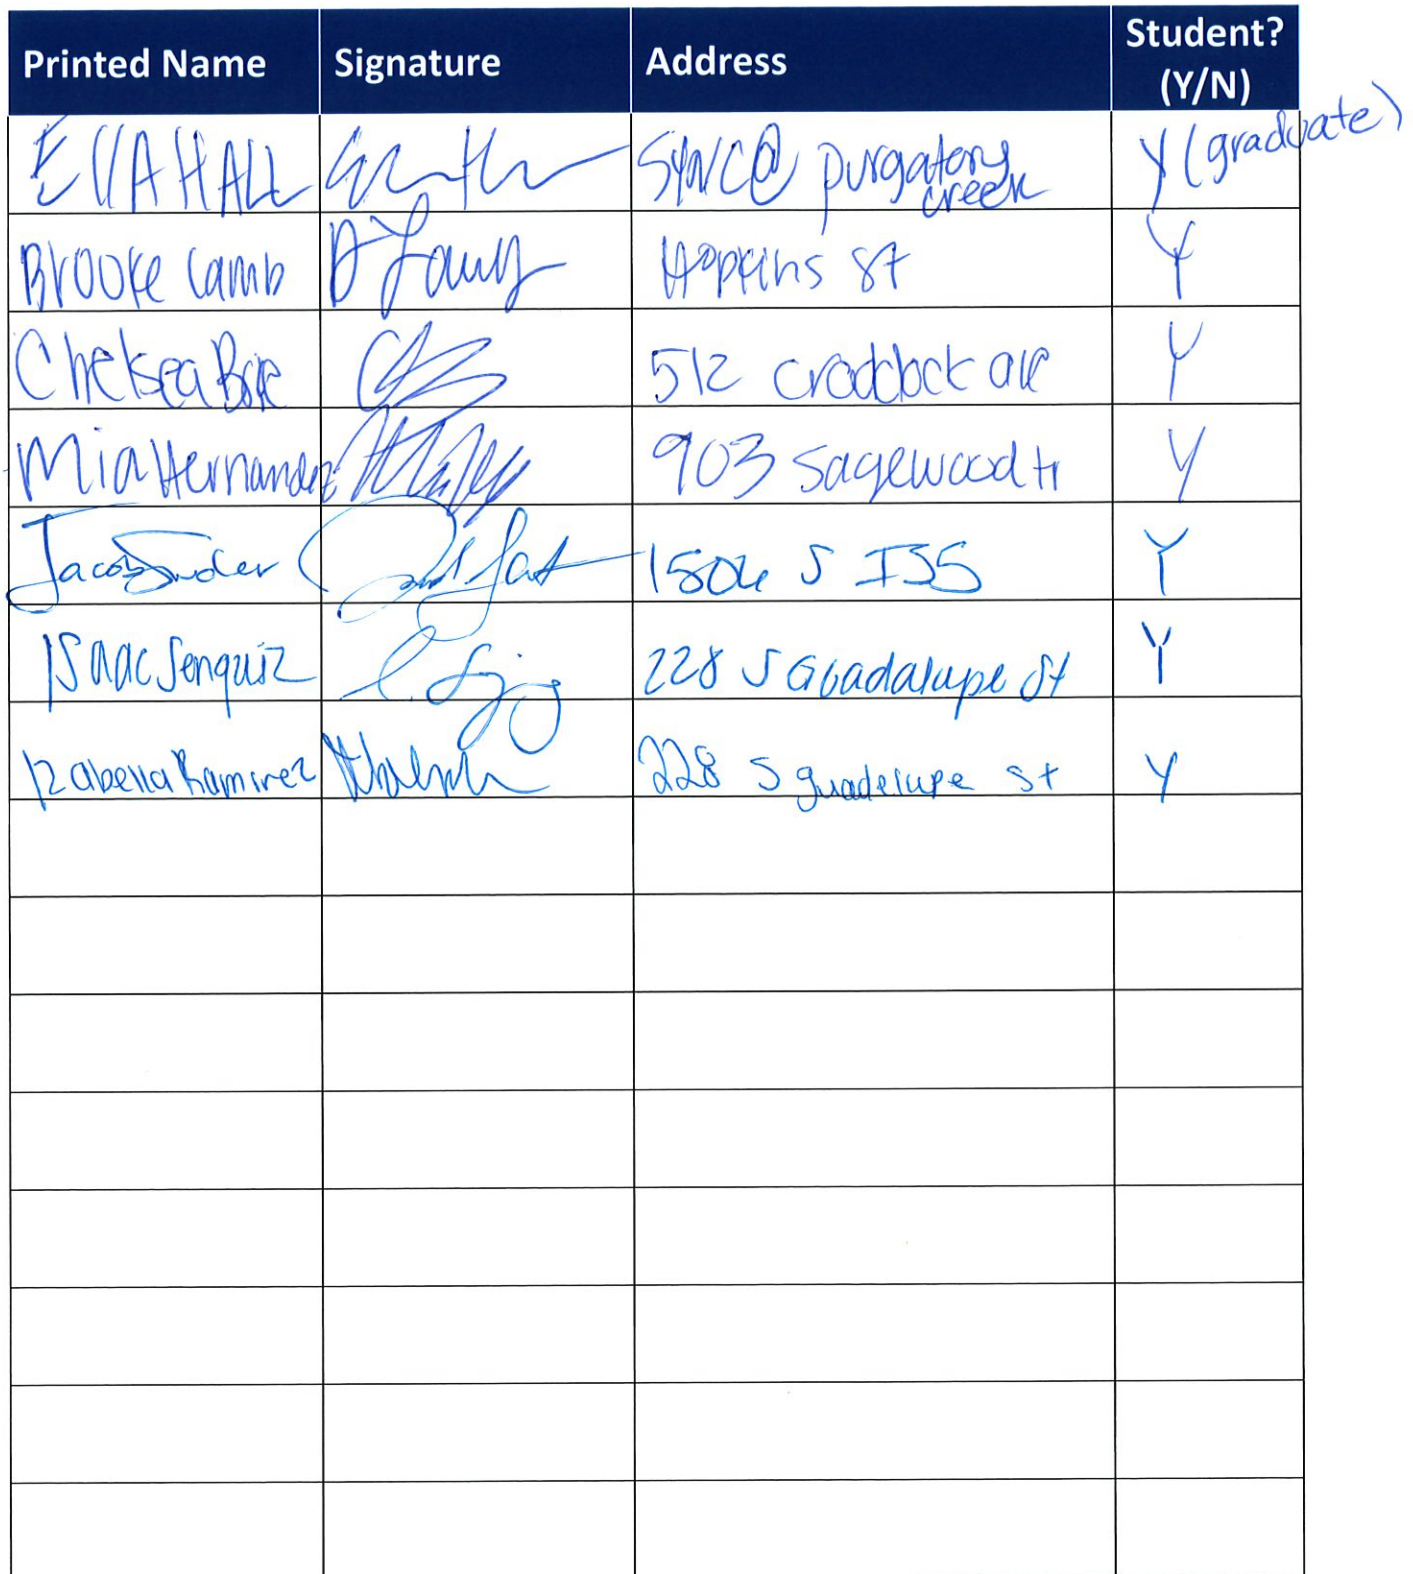 Printed Name Signature Address Student? (Y/N)
EllA HALL SYNC@ purgatory creek Y (graduate)
Brooke Lamb Hopkins St Y
Chelsea 512 craddock ave Y
Mia Hernandez 903 sagewood tr Y
Jacob 1504 S I35 Y
Isaac Senquiz 228 S Guadalupe St Y
Izabella Ramirez 228 S guadelupe st Y